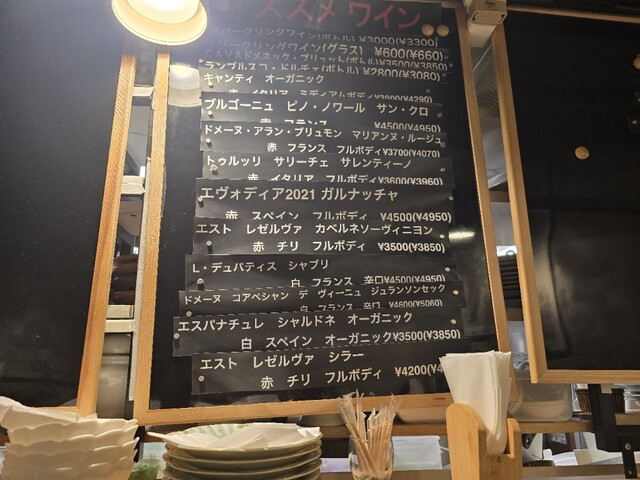 ススメ ワイン
スパークリングワイン(ボトル) ¥3000(¥3300)
スパークリングワイン(グラス) ¥600(¥660)
CAVAドメネック・ブリュット(ボトル)¥3500(¥3850)
ランブルスコ・ドルチェ(ボトル)¥2800(¥3080)
キャンティ オーガニック
赤 イタリア ミディアムボディ¥3900(¥4290)
ブルゴーニュ ピノ・ノワール サン・クロ
赤 フランス ¥4500(¥4950)
ドメーヌ・アラン・ブリュモン マリアンヌ・ルージュ
赤 フランス フルボディ¥3700(¥4070)
トゥルッリ サリーチェ サレンティーノ
赤 イタリア フルボディ¥3600(¥3960)
エヴォディア2021 ガルナッチャ
赤 スペイン フルボディ ¥4500(¥4950)
エスト レゼルヴァ カベルネソーヴィニヨン
赤 チリ フルボディ ¥3500(¥3850)
L・デュパティス シャブリ
白 フランス 辛口¥4500(¥4950)
ドメーヌ コアペシャン デ ヴィーニュ ジュランソンセック
白 フランス 辛口 ¥4600(¥5060)
エスパナチュレ シャルドネ オーガニック
白 スペイン オーガニック¥3500(¥3850)
エスト レゼルヴァ シラー
赤 チリ フルボディ ¥4200(¥4